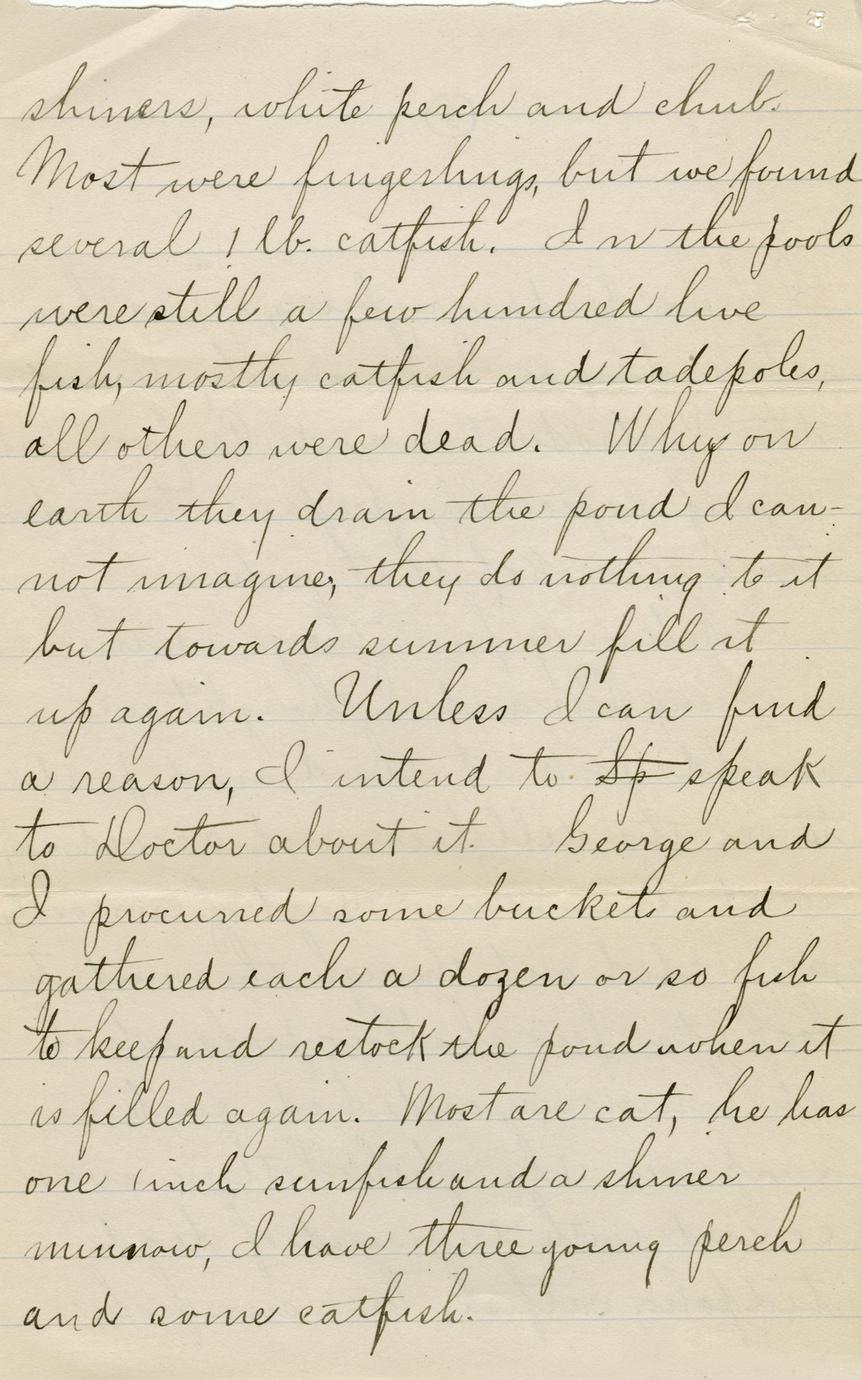 shiners, white perch and chub.
Most were fingerlings, but we found
several 1 lb. catfish. In the pools
were still a few hundred live
fish, mostly catfish and tadepoles,
all others were dead. Why on
earth they drain the pond I can-
not imagine, they do nothing to it
but towards summer fill it
up again. Unless I can find
a reason, I intend to Sp speak
to Doctor about it. George and
I procurred some buckets and
gathered each a dozen or so fish
to keep and restock the pond when it
is filled again. Most are cat, he has
one 1 inch sunfish and a shiner
minnow, I have three young perch
and some catfish.